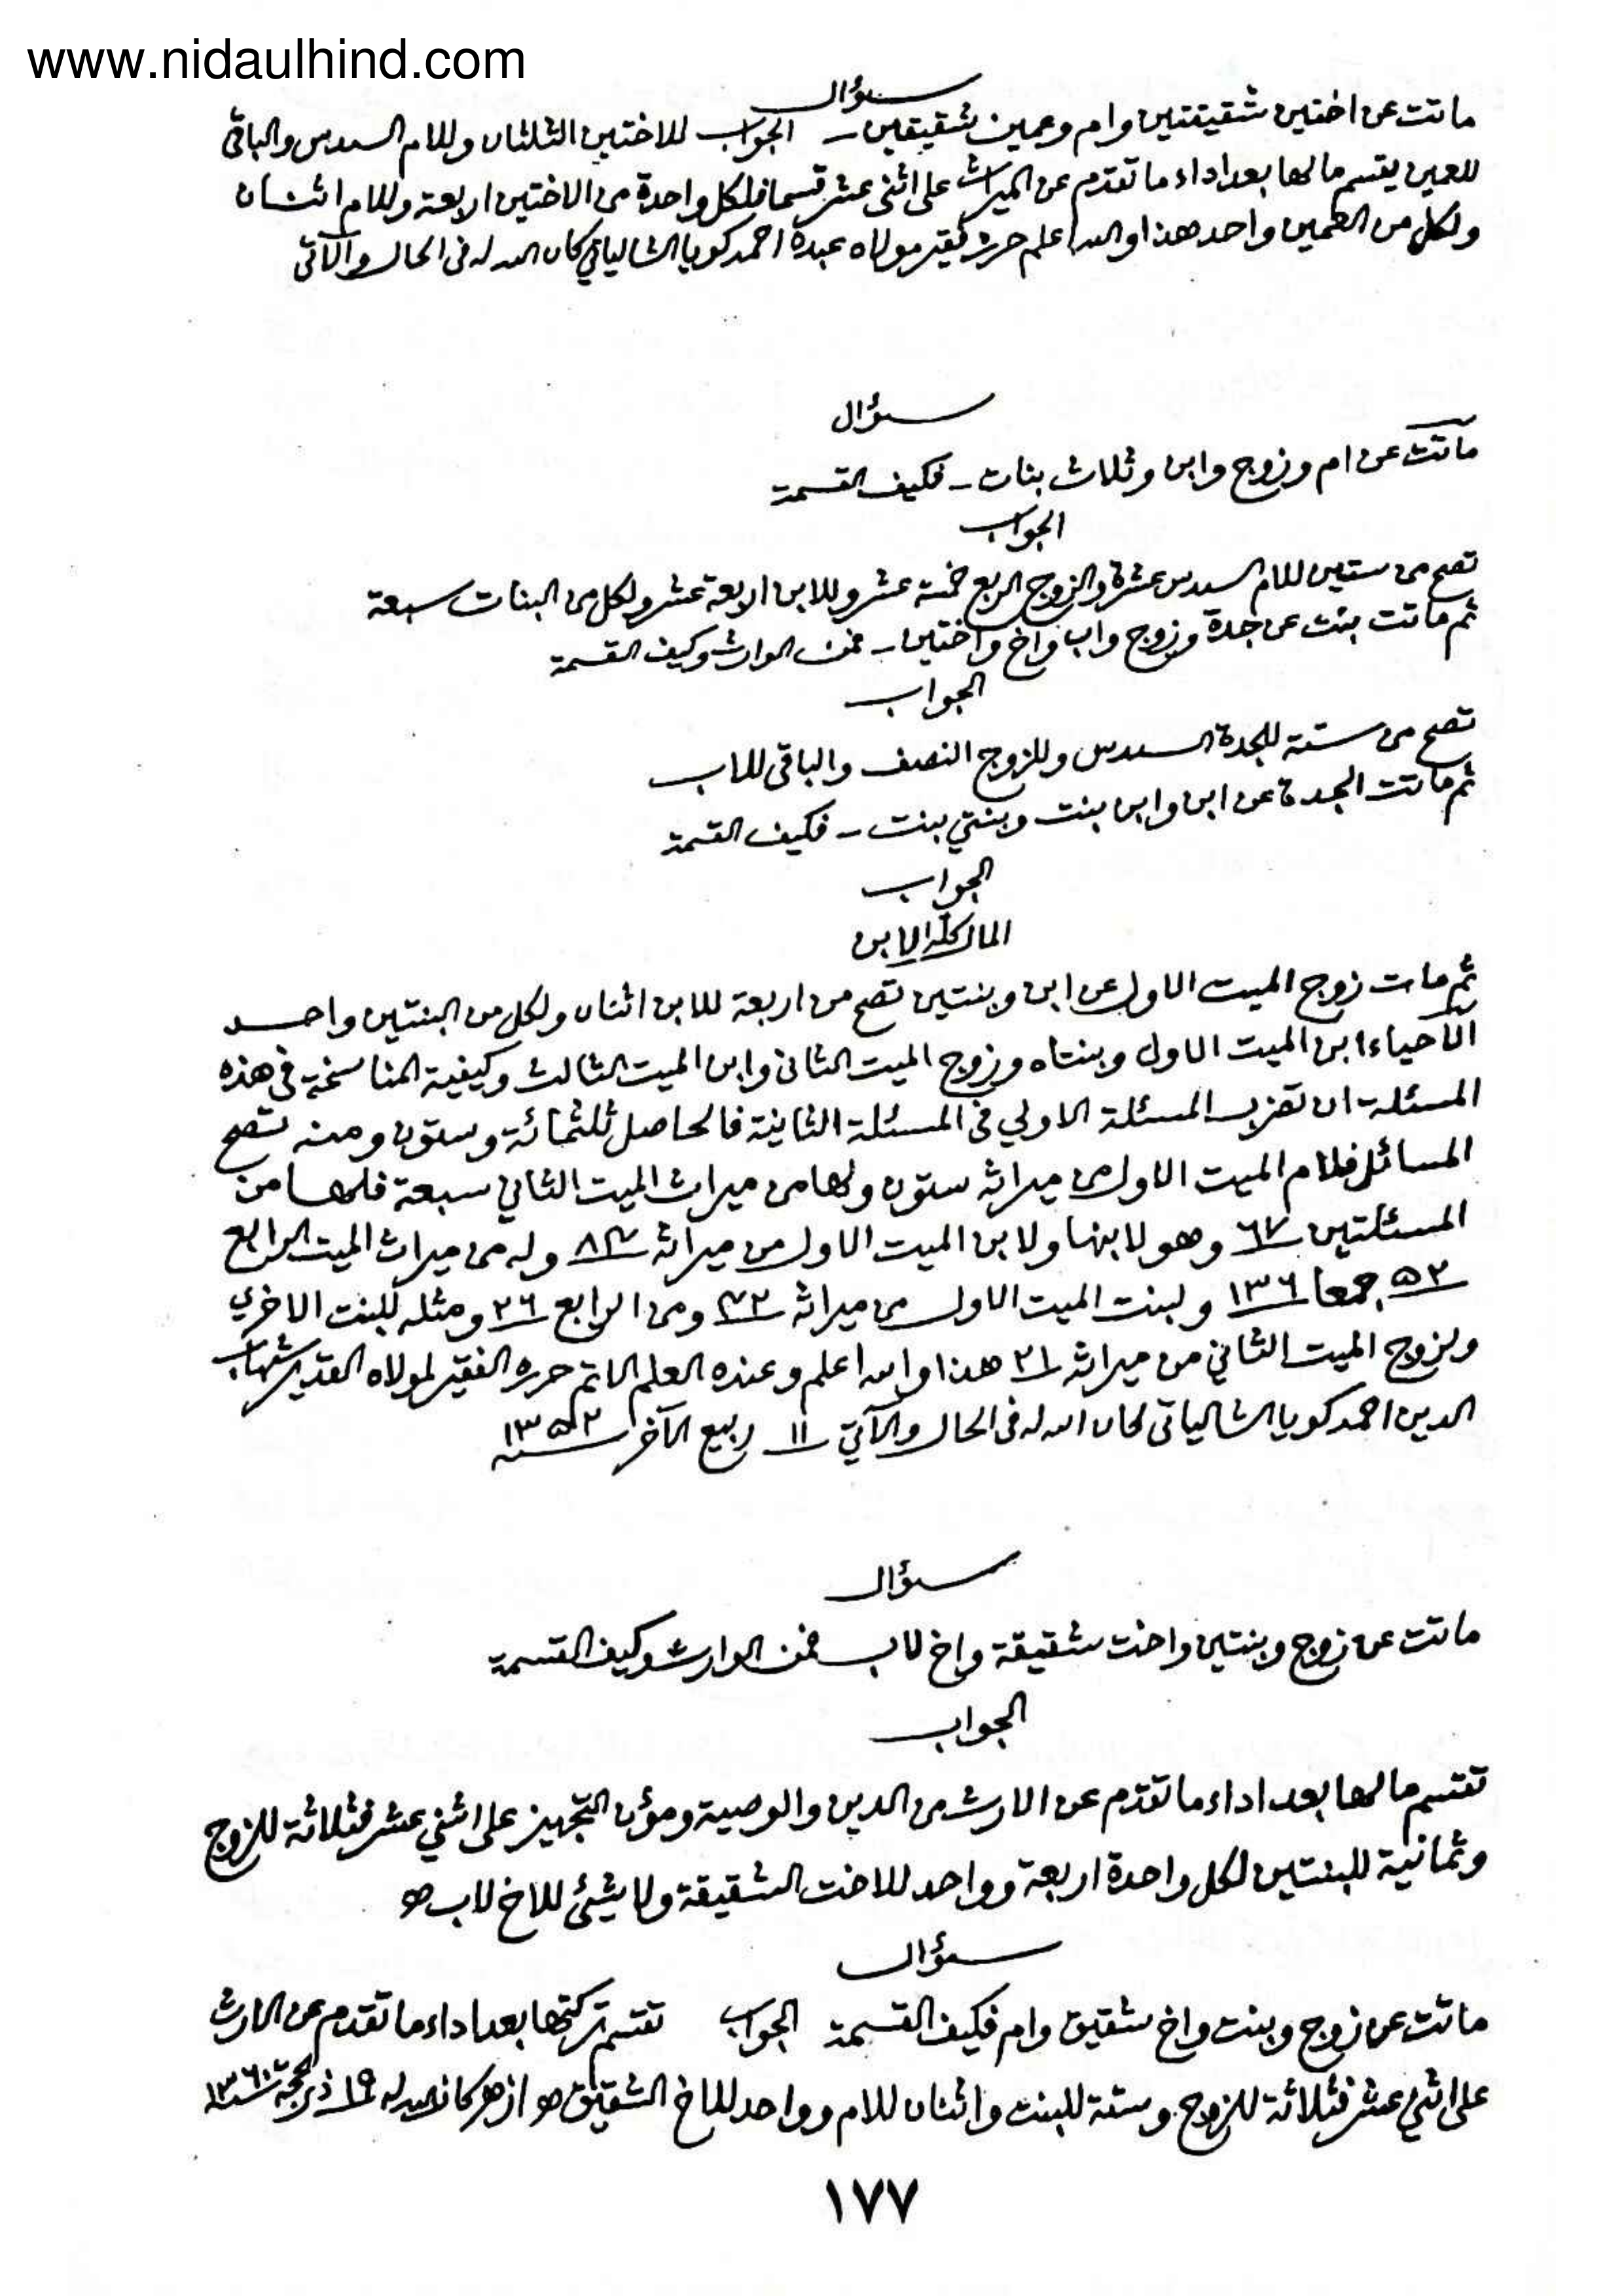 www.nidaulhind.com
سؤال
ماتت عن اختين شقيقتين وام وعمين شقيقين – الجواب للاختين الثلثان وللام السدس والباقي
للعمين يقسم مالها بعد اداء ما تقدم عن الميراث على اثنى عشر قسما فلكل واحدة من الاختين اربعة وللام اثنان
ولكل من العمين واحد هذا والله اعلم حرره فقير مولاه عبده احمد كويا الشالياتي كان الله له فى الحال والآتى
سؤال
ماتت عن ام وزوج وابن وثلاث بنات – فكيف القسمة
الجواب
تصح من ستين للام السدس عشرة وللزوج الربع خمسة عشر وللابن اربعة عشر ولكل من البنات سبعة
ثم ماتت بنت عن جدة وزوج واب واخ واختين – فمن الوارث وكيف القسمة
الجواب
تصح من ستة للجدة السدس وللزوج النصف والباقى للاب
ثم ماتت الجدة عن ابن وابن بنت وبنتي بنت – فكيف القسمة
الجواب
المال كله للابن
ثم مات زوج الميت الاول عن ابن وبنتين تصح من اربعة للابن اثنان ولكل من البنتين واحد
الاحياء ابن الميت الاول وبنتاه وزوج الميت الثانى وابن الميت الثالث وكيفية المناسخة فى هذه
المسئلة ان تضرب المسئلة الاولي فى المسئلة الثانية فالحاصل ثلثمائة وستون ومنه تصح
المسائل فلام الميت الاول من ميراثه ستون ولها من ميراث الميت الثاني سبعة فلها من
المسئلتين ٦٧ وهو لابنها ولابن الميت الاول من ميراثه ٨٤ وله من ميراث الميت الرابع
٥٢ جمعا ١٣٦ ولبنت الميت الاول من ميراثه ٤٢ ومن الرابع ٢٦ ومثله للبنت الاخري
ولزوج الميت الثاني من ميراثه ٢١ هذا والله اعلم وعنده العلم الاتم حرره الفقير لمولاه القدير شهاب
الدين احمد كويا الشالياتى كان الله له فى الحال والآتي ١١ ربيع الآخر سنة ١٣٥٢
سؤال
ماتت عن زوج وبنتين واخت شقيقة واخ لاب فمن الوارث وكيف القسمة
الجواب
تقسم مالها بعد اداء ما تقدم عن الارث من الدين والوصية ومؤن التجهيز على اثني عشر فثلاثة للزوج
وثمانية للبنتين لكل واحدة اربعة وواحد للاخت الشقيقة ولا شيئ للاخ لاب
سؤال
ماتت عن زوج وبنت واخ شقيق وام فكيف القسمة الجواب تقسم تركتها بعد اداء ما تقدم عن الارث
على اثني عشر فثلاثة للزوج وستة للبنت واثنان للام وواحد للاخ الشقيق كان الله له ١٩ ذى الحجة سنة ١٣٦٠
١٧٧